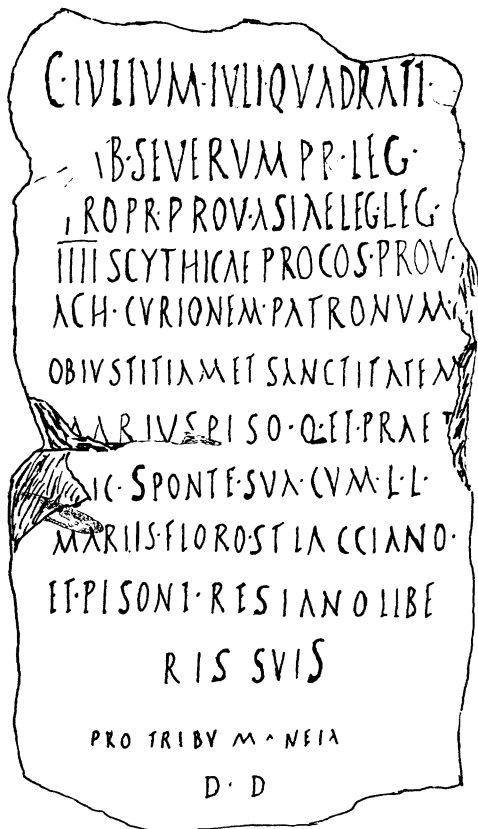 C·IVLIVM·IVLI·QVADRATI·
B·SEVERVM PP·LEG·
ROPR·PROV·ASIAELEG·LEG·
IIII SCYTHICAE PROCOS·PROV·
ACH·CVRIONEM·PATRONVM·
OBIVSTITIAM ET SANCTITATEM
MARIVS PISO·Q·ET·PRAET
IC·SPONTE·SVA·CVM·L·L·
MARIIS·FLOROSTLACCIANO·
ET·PISONI·RESIANO LIBE
RIS SVIS
PRO TRIBV MANEIA
D·D